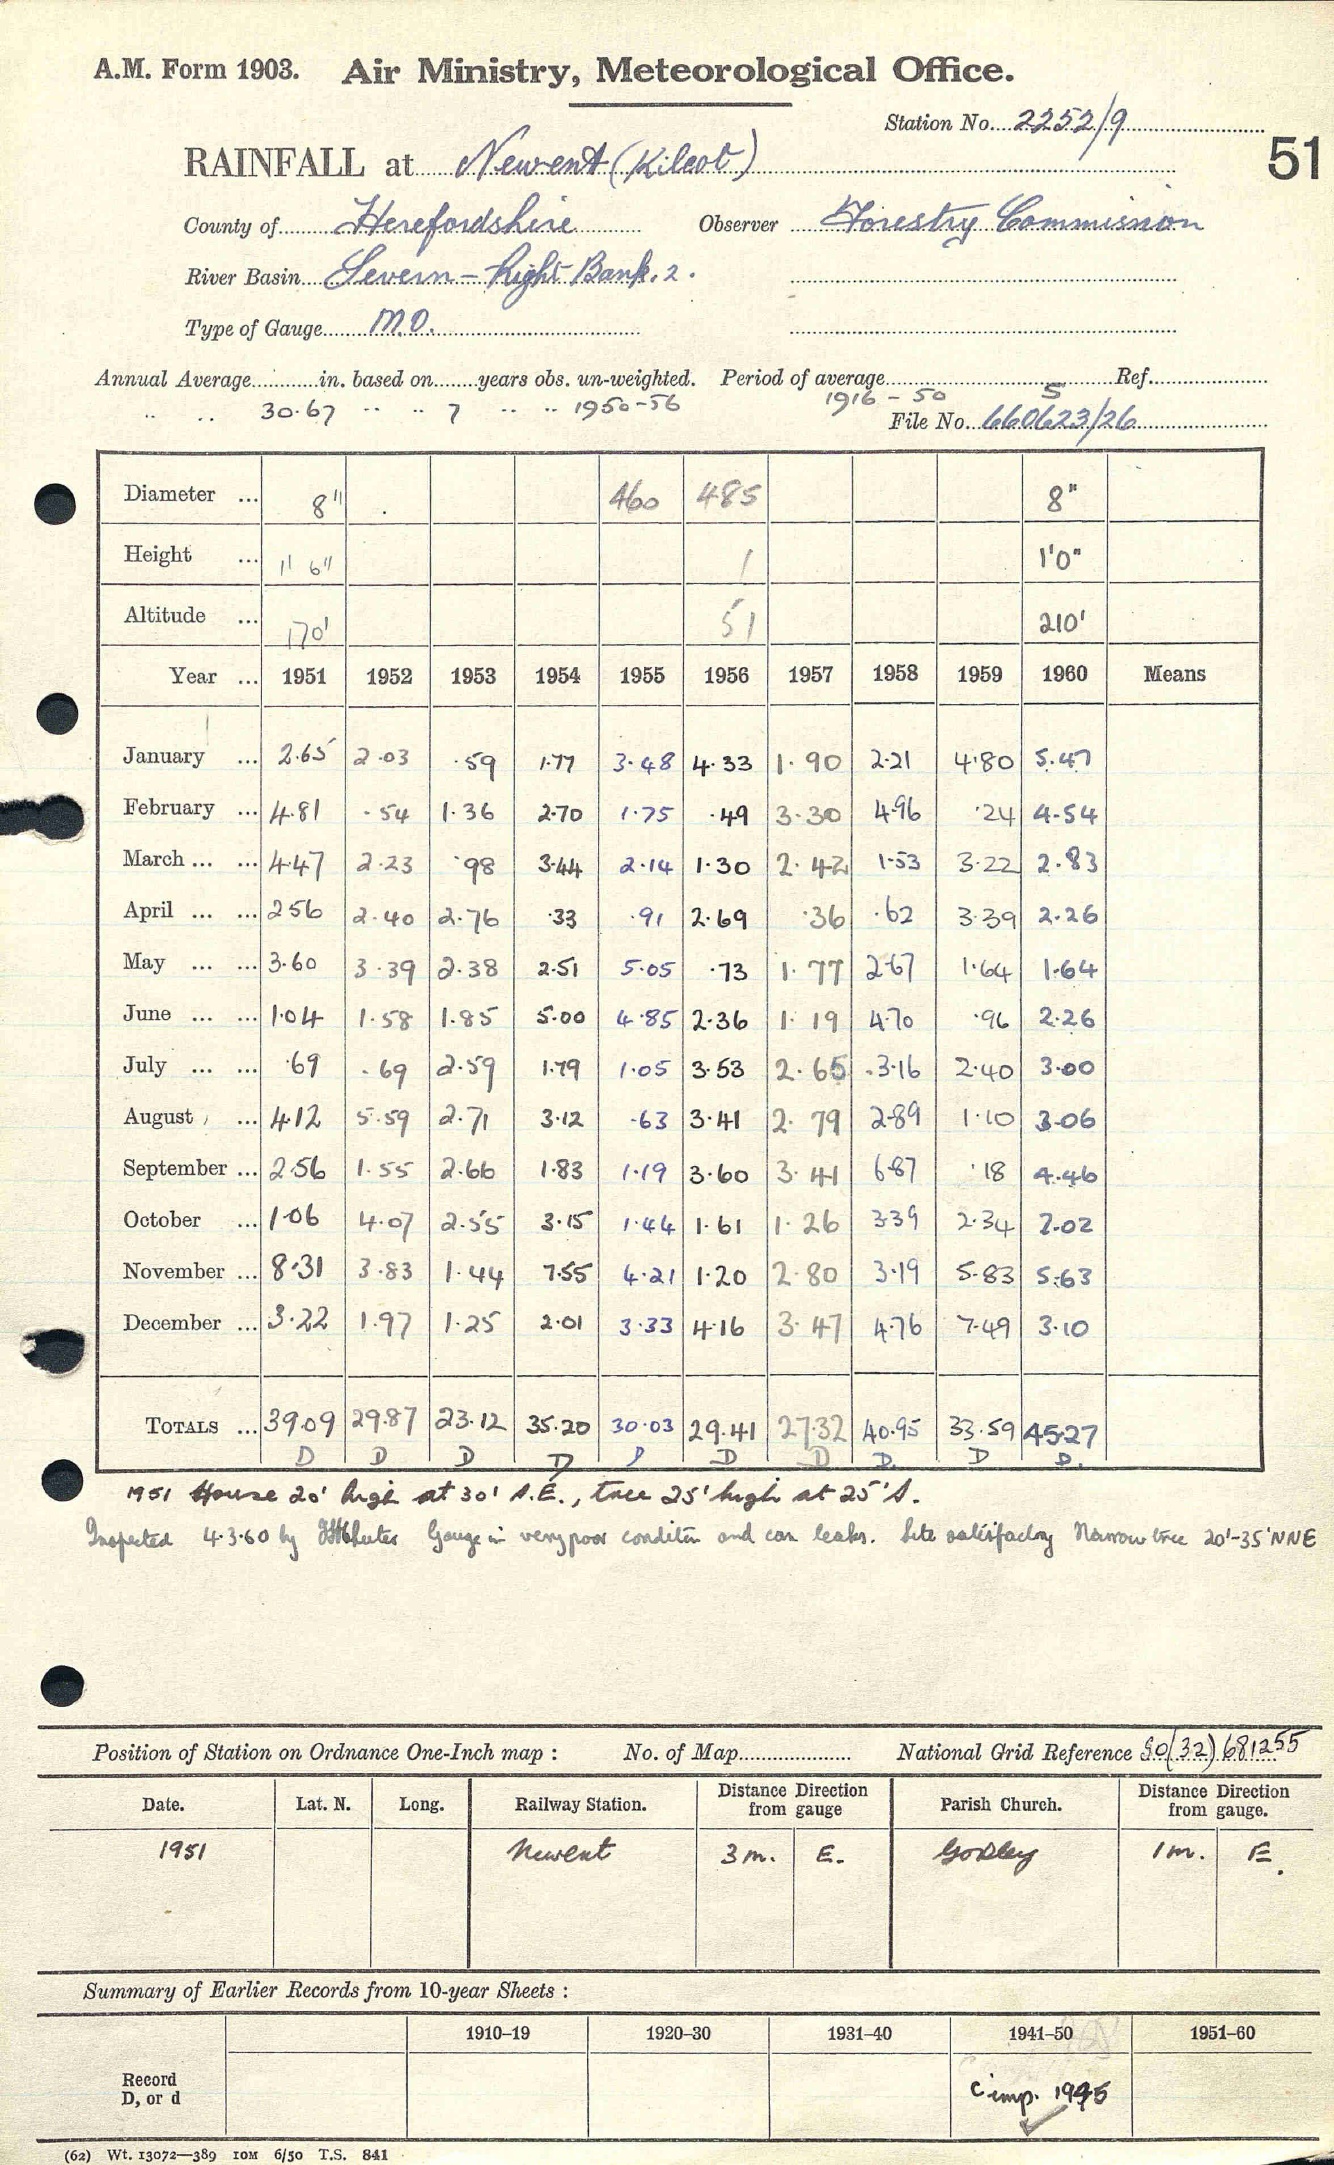 A.M. Form 1903. Air Ministry, Meteorological Office.
Station No. 2252/9
51
RAINFALL at Newent (Kilcot)
County of Herefordshire Observer Forestry Commission
River Basin Severn - Right Bank. 2.
Type of Gauge M.O.
Annual Average in. based on years obs. un-weighted. Period of average Ref.
" " 30.67 " " 7 " " 1950-56 1916 - 50 5
File No. 660623/26
Diameter ... 8" 460 485 8"
Height ... 1' 6" 1 1'0"
Altitude ... 170' 51 210'
Year ... 1951 1952 1953 1954 1955 1956 1957 1958 1959 1960 Means
January ... 2.65 2.03 .59 1.77 3.48 4.33 1.90 2.21 4.80 5.47
February ... 4.81 .54 1.36 2.70 1.75 .49 3.30 4.96 .24 4.54
March ... ... 4.47 2.23 .98 3.44 2.14 1.30 2.42 1.53 3.22 2.83
April ... ... 2.56 2.40 2.76 .33 .91 2.69 .36 .62 3.39 2.26
May ... ... 3.60 3.39 2.38 2.51 5.05 .73 1.77 2.67 1.64 1.64
June ... ... 1.04 1.58 1.85 5.00 4.85 2.36 1.19 4.70 .96 2.26
July ... ... .69 .69 2.59 1.79 1.05 3.53 2.65 3.16 2.40 3.00
August ... 4.12 5.59 2.71 3.12 .63 3.41 2.79 2.89 1.10 3.06
September ... 2.56 1.55 2.66 1.83 1.19 3.60 3.41 6.87 .18 4.46
October ... 1.06 4.07 2.55 3.15 1.44 1.61 1.26 3.39 2.34 7.02
November ... 8.31 3.83 1.44 7.55 4.21 1.20 2.80 3.19 5.83 5.63
December ... 3.22 1.97 1.25 2.01 3.33 4.16 3.47 4.76 7.49 3.10
TOTALS ... 39.09 29.87 23.12 35.20 30.03 29.41 27.32 40.95 33.59 45.27
D D D D D D D D. D D.
1951 House 20' high at 30' S.E., tree 25' high at 25' S.
Inspected 4.3.60 by Gauge in very poor condition and can leaks. Site satisfactory Narrow tree 20'-35' NNE
Position of Station on Ordnance One-Inch map : No. of Map National Grid Reference SO(32) 681255
Date. Lat. N. Long. Railway Station. Distance from gauge Direction Parish Church. Distance from gauge. Direction
1951 Newent 3 m. E. Gorsley 1 m. E.
Summary of Earlier Records from 10-year Sheets :
1910–19 1920–30 1931–40 1941–50 1951–60
Record D, or d
C imp. 1945 ✓
(62) Wt. 13072—389 10M 6/50 T.S. 841